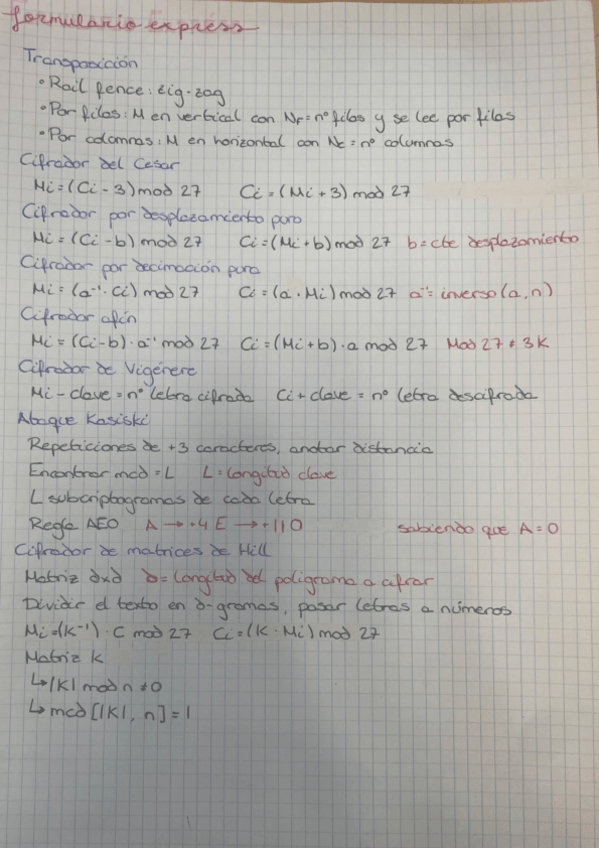 formulario express
Transposición
• Rail fence: zig-zag
• Por filas: M en vertical con NF = nº filas y se lee por filas
• Por columnas: M en horizontal con Nc = nº columnas
Cifrador del Cesar
Mi = (Ci - 3) mod 27 Ci = (Mi + 3) mod 27
Cifrador por desplazamiento puro
Mi = (Ci - b) mod 27 Ci = (Mi + b) mod 27 b = cte desplazamiento
Cifrador por decimación pura
Mi = (a⁻¹ · Ci) mod 27 Ci = (a · Mi) mod 27 a⁻¹ = inverso (a, n)
Cifrador afín
Mi = (Ci - b) · a⁻¹ mod 27 Ci = (Mi + b) · a mod 27 Mod 27 ≠ 3K
Cifrador de Vigénere
Mi - clave = nº letra cifrada Ci + clave = nº letra descifrada
Ataque Kasiski
Repeticiones de +3 caracteres, anotar distancia
Encontrar mcd = L L = Longitud clave
L subcriptogramas de cada letra
Regla AEO A → +4 E → +11 O sabiendo que A = 0
Cifrador de matrices de Hill
Matriz dxd d = Longitud del poligrama a cifrar
Dividir el texto en d-gramas, pasar letras a números
Mi = (K⁻¹) · C mod 27 Ci = (K · Mi) mod 27
Matriz K
↳ |K| mod n ≠ 0
↳ mcd [|K|, n] = 1